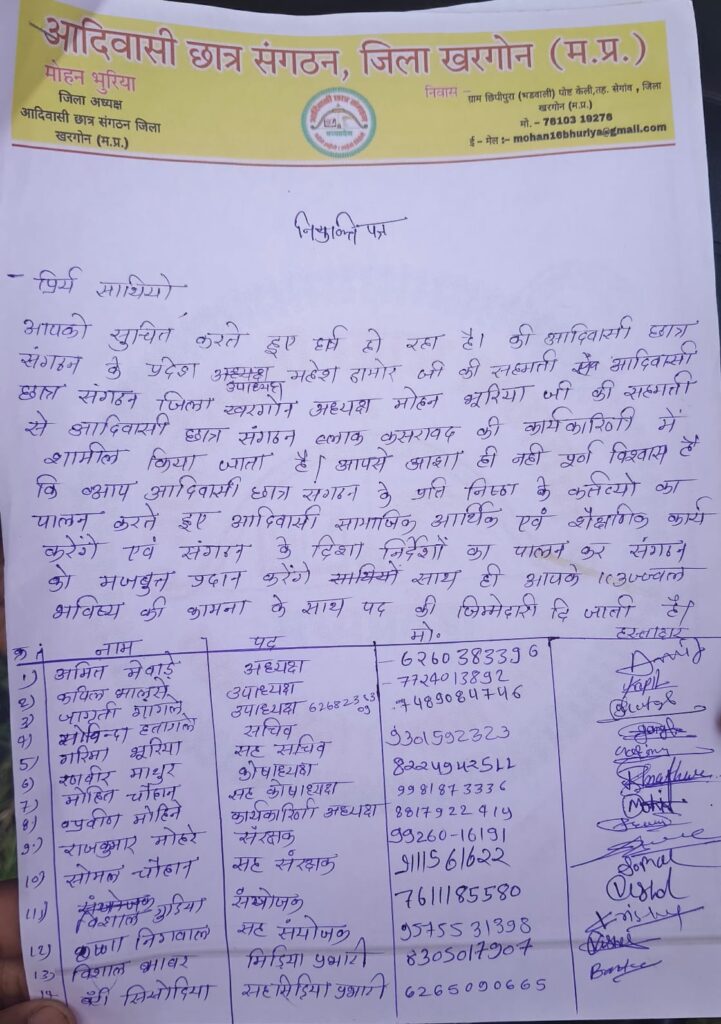 आदिवासी छात्र संगठन, जिला खरगोन (म.प्र.)
मोहन भुरिया
जिला अध्यक्ष
आदिवासी छात्र संगठन जिला
खरगोन (म.प्र.)
निवास - ग्राम छिपीपुरा (भडवाली) पोष्ट केली,तह. सेगांव , जिला
खरगोन (म.प्र.)
मो. – 76103 19276
ई – मेल :– mohan16bhuriya@gmail.com
नियुक्ति पत्र
- प्रिर्य साथियो
आपको सुचित करते हुए हर्ष हो रहा है। की आदिवासी छात्र
संगठन के प्रदेश उपाध्यक्ष महेश डामोर जी की सहमती एवं आदिवासी
छात्र संगठन जिला खरगोन अध्यक्ष मोहन भूरिया जी की सहमती
से आदिवासी छात्र संगठन ब्लाक कसरावद की कार्यकारिणी में
शामील किया जाता है। आपसे आशा ही नही पूर्ण विश्वास है
कि आप आदिवासी छात्र संगठन के प्रति निष्ठा के कर्तव्यो का
पालन करते हुए आदिवासी सामाजिक आर्थिक एवं शैक्षणिक कार्य
करेंगे एवं संगठन के दिशा निर्देशों का पालन कर संगठन
को मजबुत प्रदान करेंगे साथ ही आपके उज्ज्वल
भविष्य की कामना के साथ पद की जिम्मेदारी दि जाती है।
नाम पद मो. हस्ताक्षर
1) अमित मेवाड़े अध्यक्ष - 6260383396
2) कपिल भालसे उपाध्यक्ष - 7724013892 Kapil
3) जागृती गांगले उपाध्यक्ष 7489084746
4) गोविन्दा हतागले सचिव 9301592323
5) गरिमा भूरिया सह सचिव
6) रणवीर माथुर कोषाध्यक्ष
7) मोहित चौहान सह कोषाध्यक्ष 9981873336 Mohit
8) प्रवीण मोहिने कार्यकारिणी अध्यक्ष
9) राजकुमार मोहरे संरक्षक 99260-16191
10) सोमल चौहान सह संरक्षक 9111561622 Somal
11) विशाल संयोजक 7611185580
12) निगवाल सह संयोजक 9575531398
13) विशाल भावर मिडिया प्रभारी 8305017907
14 सिसोदिया सह मिडिया प्रभारी 6265090665